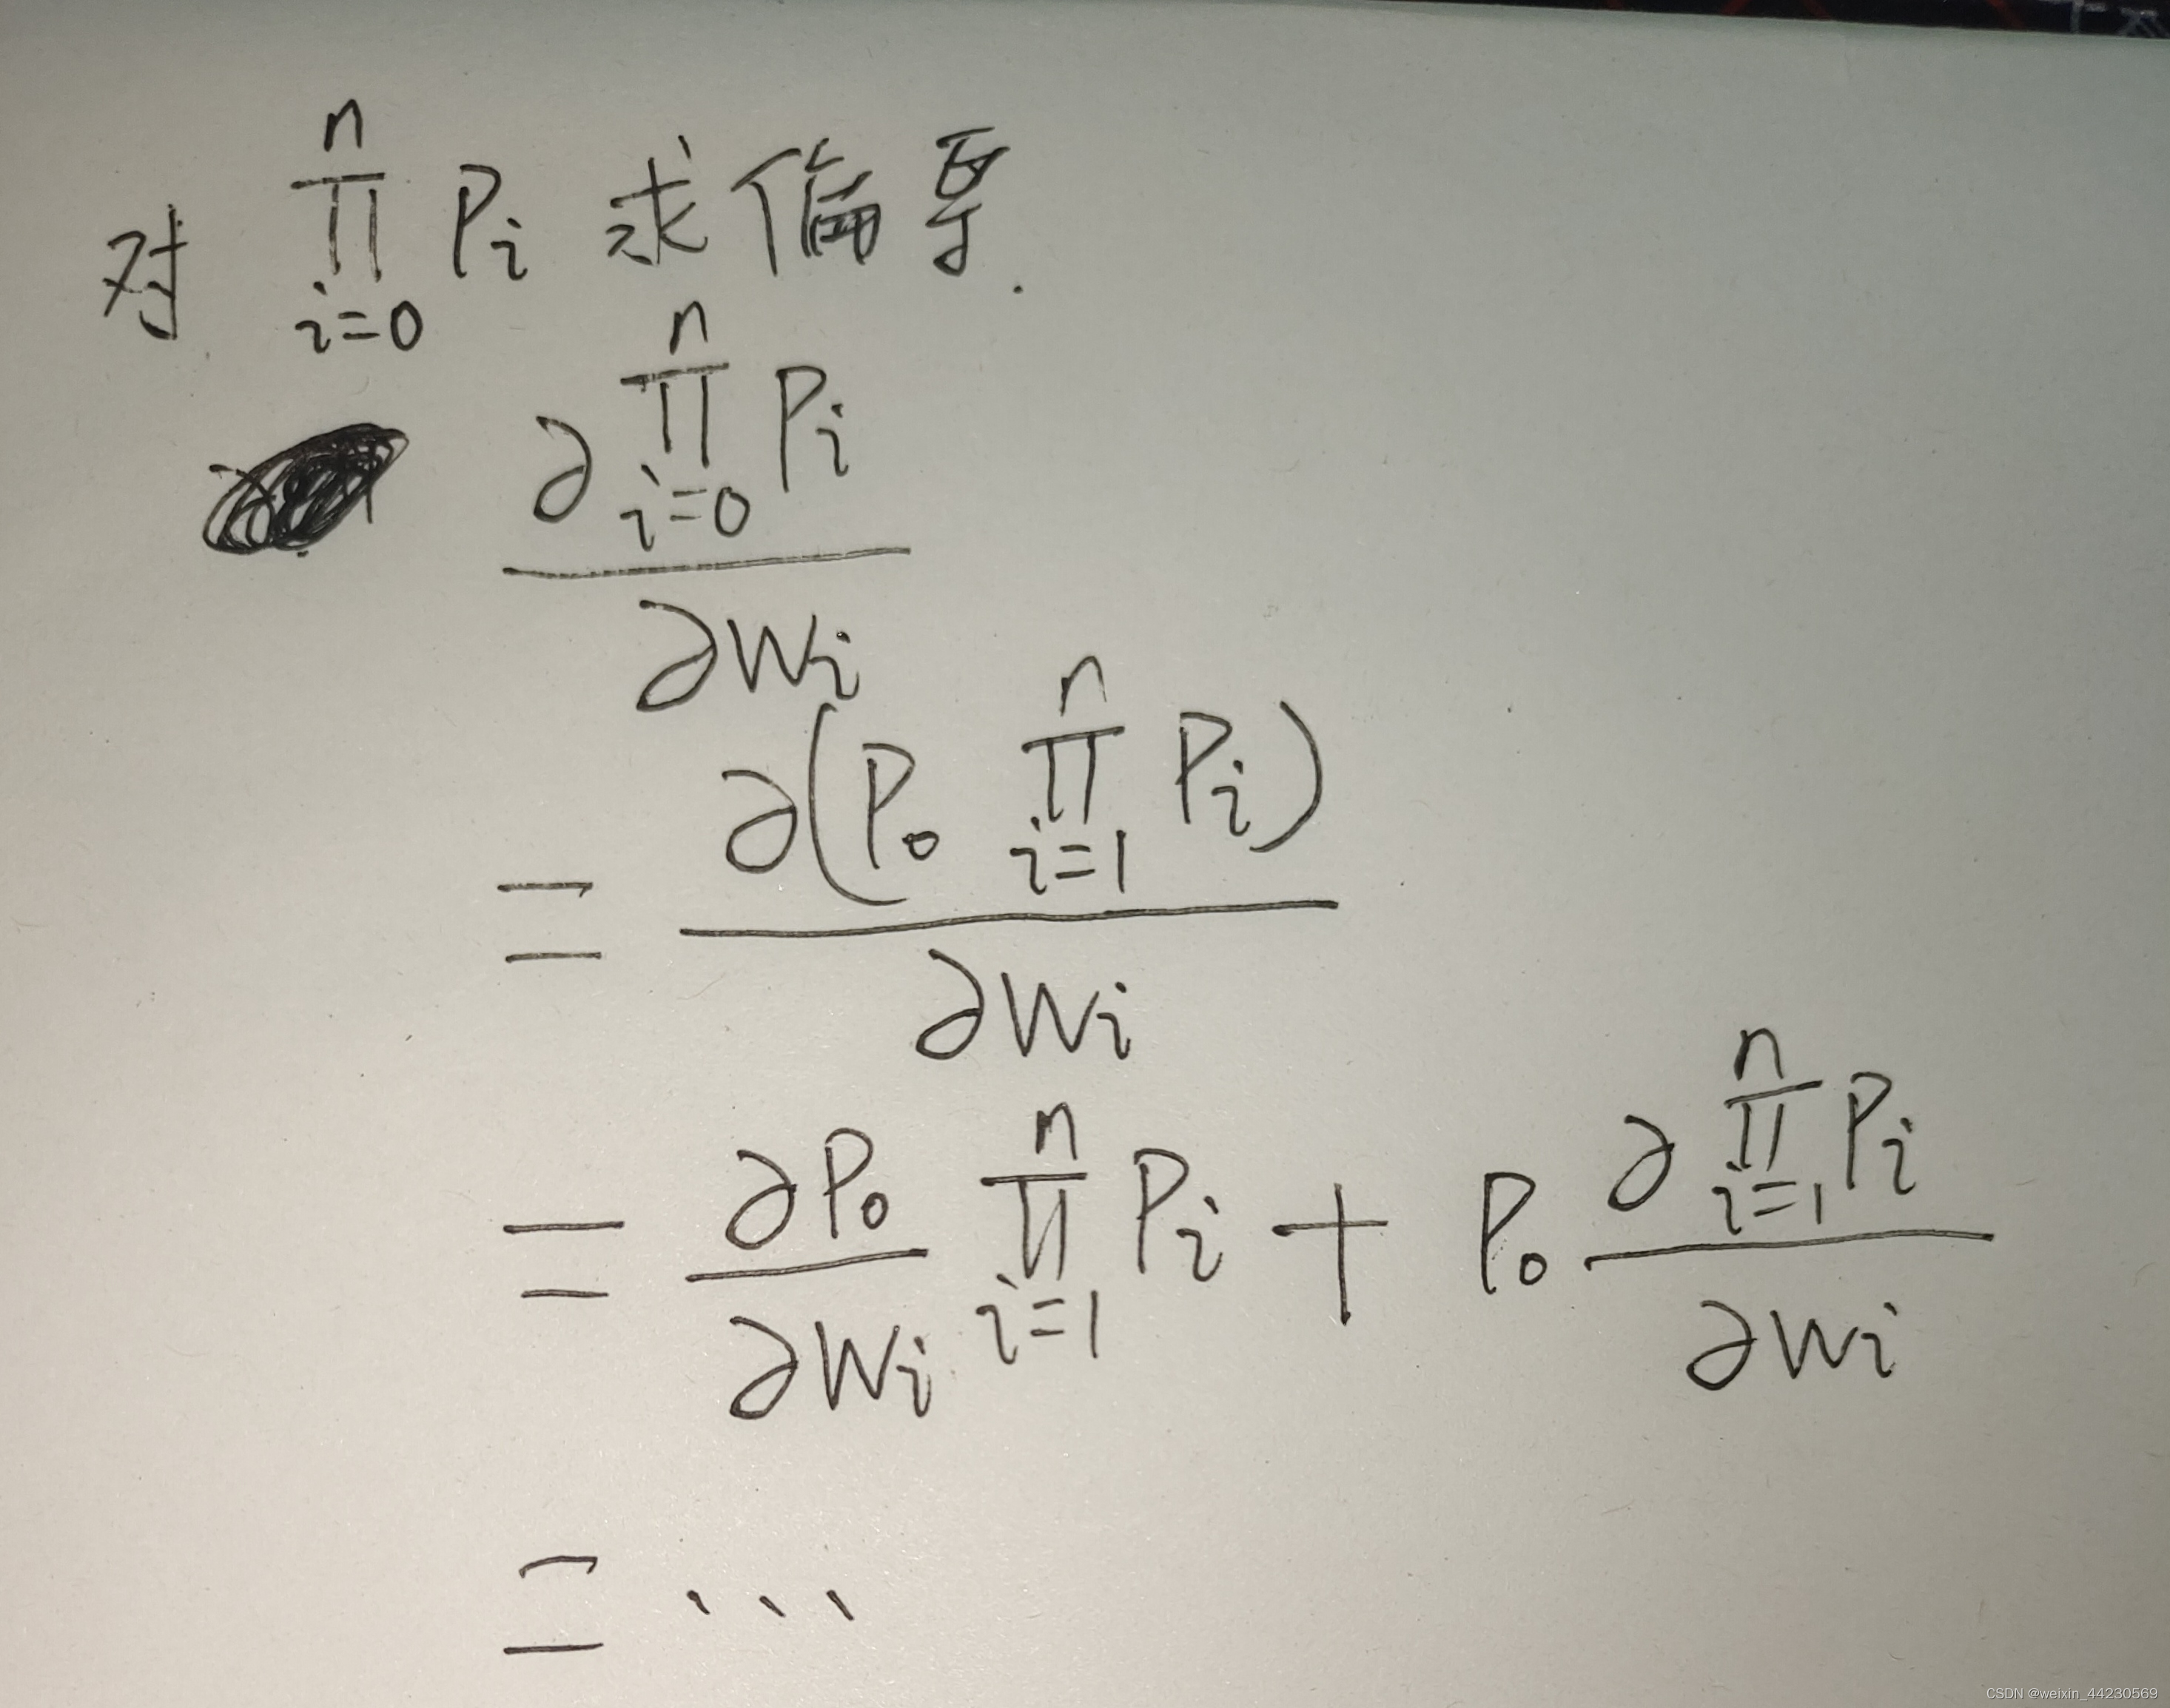 对 ∏_{i=0}^{n} P_i 求偏导.
∂ ∏_{i=0}^{n} P_i / ∂w_i
= ∂(P_0 ∏_{i=1}^{n} P_i) / ∂w_i
= ∂P_0 / ∂w_i ∏_{i=1}^{n} P_i + P_0 ∂ ∏_{i=1}^{n} P_i / ∂w_i
= ...
CSDN @weixin_44230569